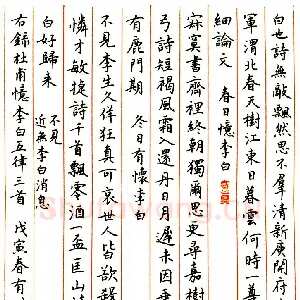 白也詩無敵飄然思不羣清新庾開府
軍渭北春天樹江東日暮雲何時一尊
細論文 春日憶李白
寂寞書齋裡終朝獨爾思更尋嘉樹
弓詩短褐風霜入還丹日月遲未因乘
有鹿門期 冬日有懷李白
不見李生久佯狂真可哀世人皆欲殺
憐才敏捷詩千首飄零酒一盃匡山
白好歸來 不見
近無李白消息
右錄杜甫憶李白五律三首 戊寅春有